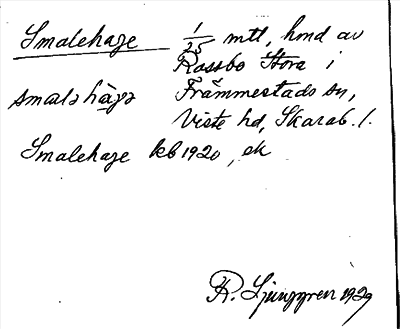 Smalehage 1/25 mtl, hmd av
Rossbo Stora i
smalahaga Främmestads sn,
Viste hd, Skarab. l.
Smalehage kb 1920, ek
R. Ljunggren 1929